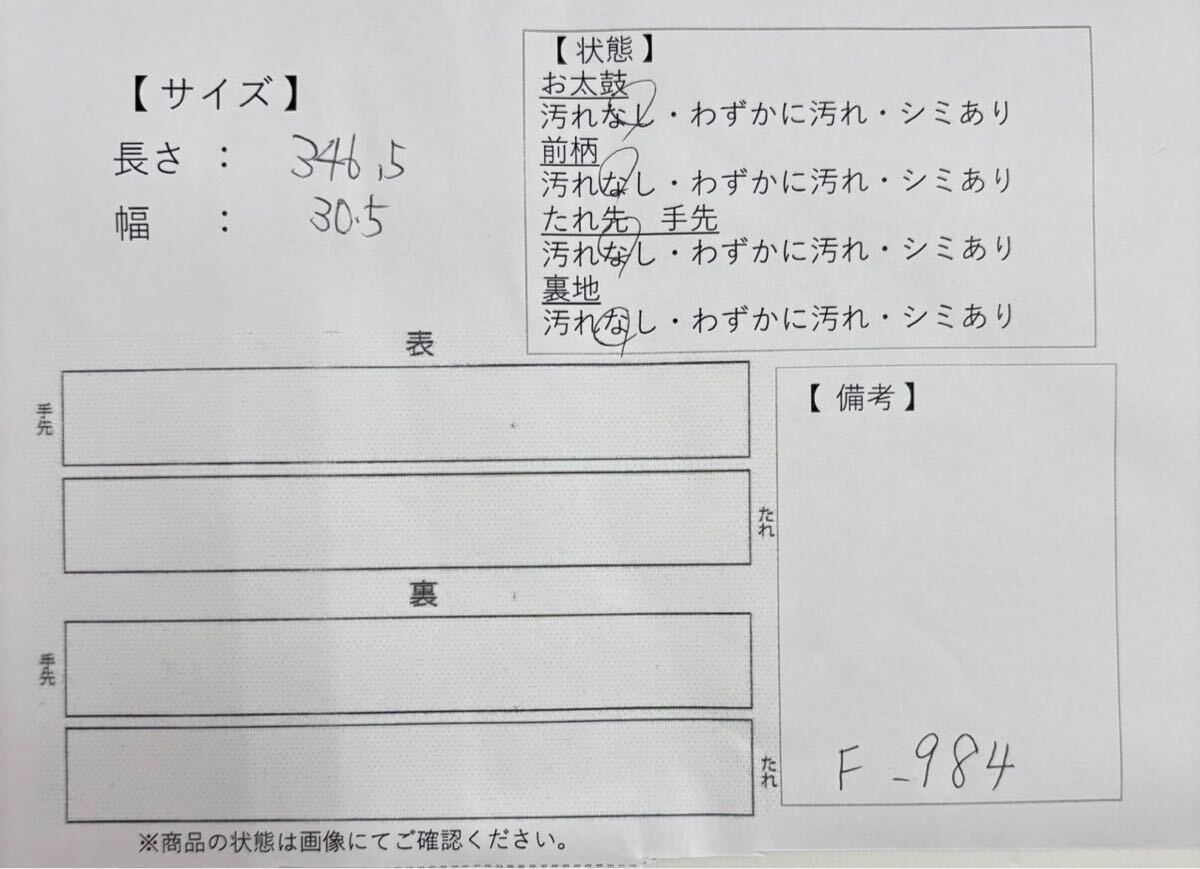 【 サイズ 】
長さ : 346.5
幅 : 30.5
【 状態 】
お太鼓
汚れなし・わずかに汚れ・シミあり
前柄
汚れなし・わずかに汚れ・シミあり
たれ先 手先
汚れなし・わずかに汚れ・シミあり
裏地
汚れなし・わずかに汚れ・シミあり
表
手先
たれ
裏
手先
たれ
【 備考 】
F -984
※商品の状態は画像にてご確認ください。